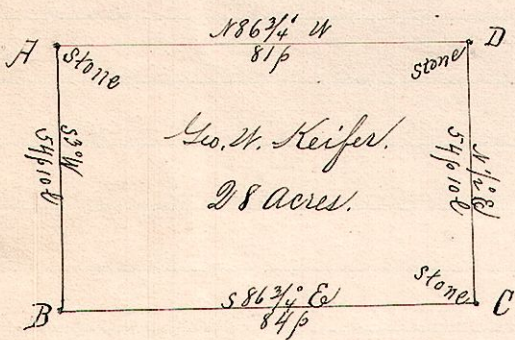 N86 3/4° W
81p
A
D
stone
stone
S3°W
54p 10l
Geo. W. Keifer.
28 Acres.
N 1/2° E
54p 10l
stone
B
S 86 3/4° E
84p
C